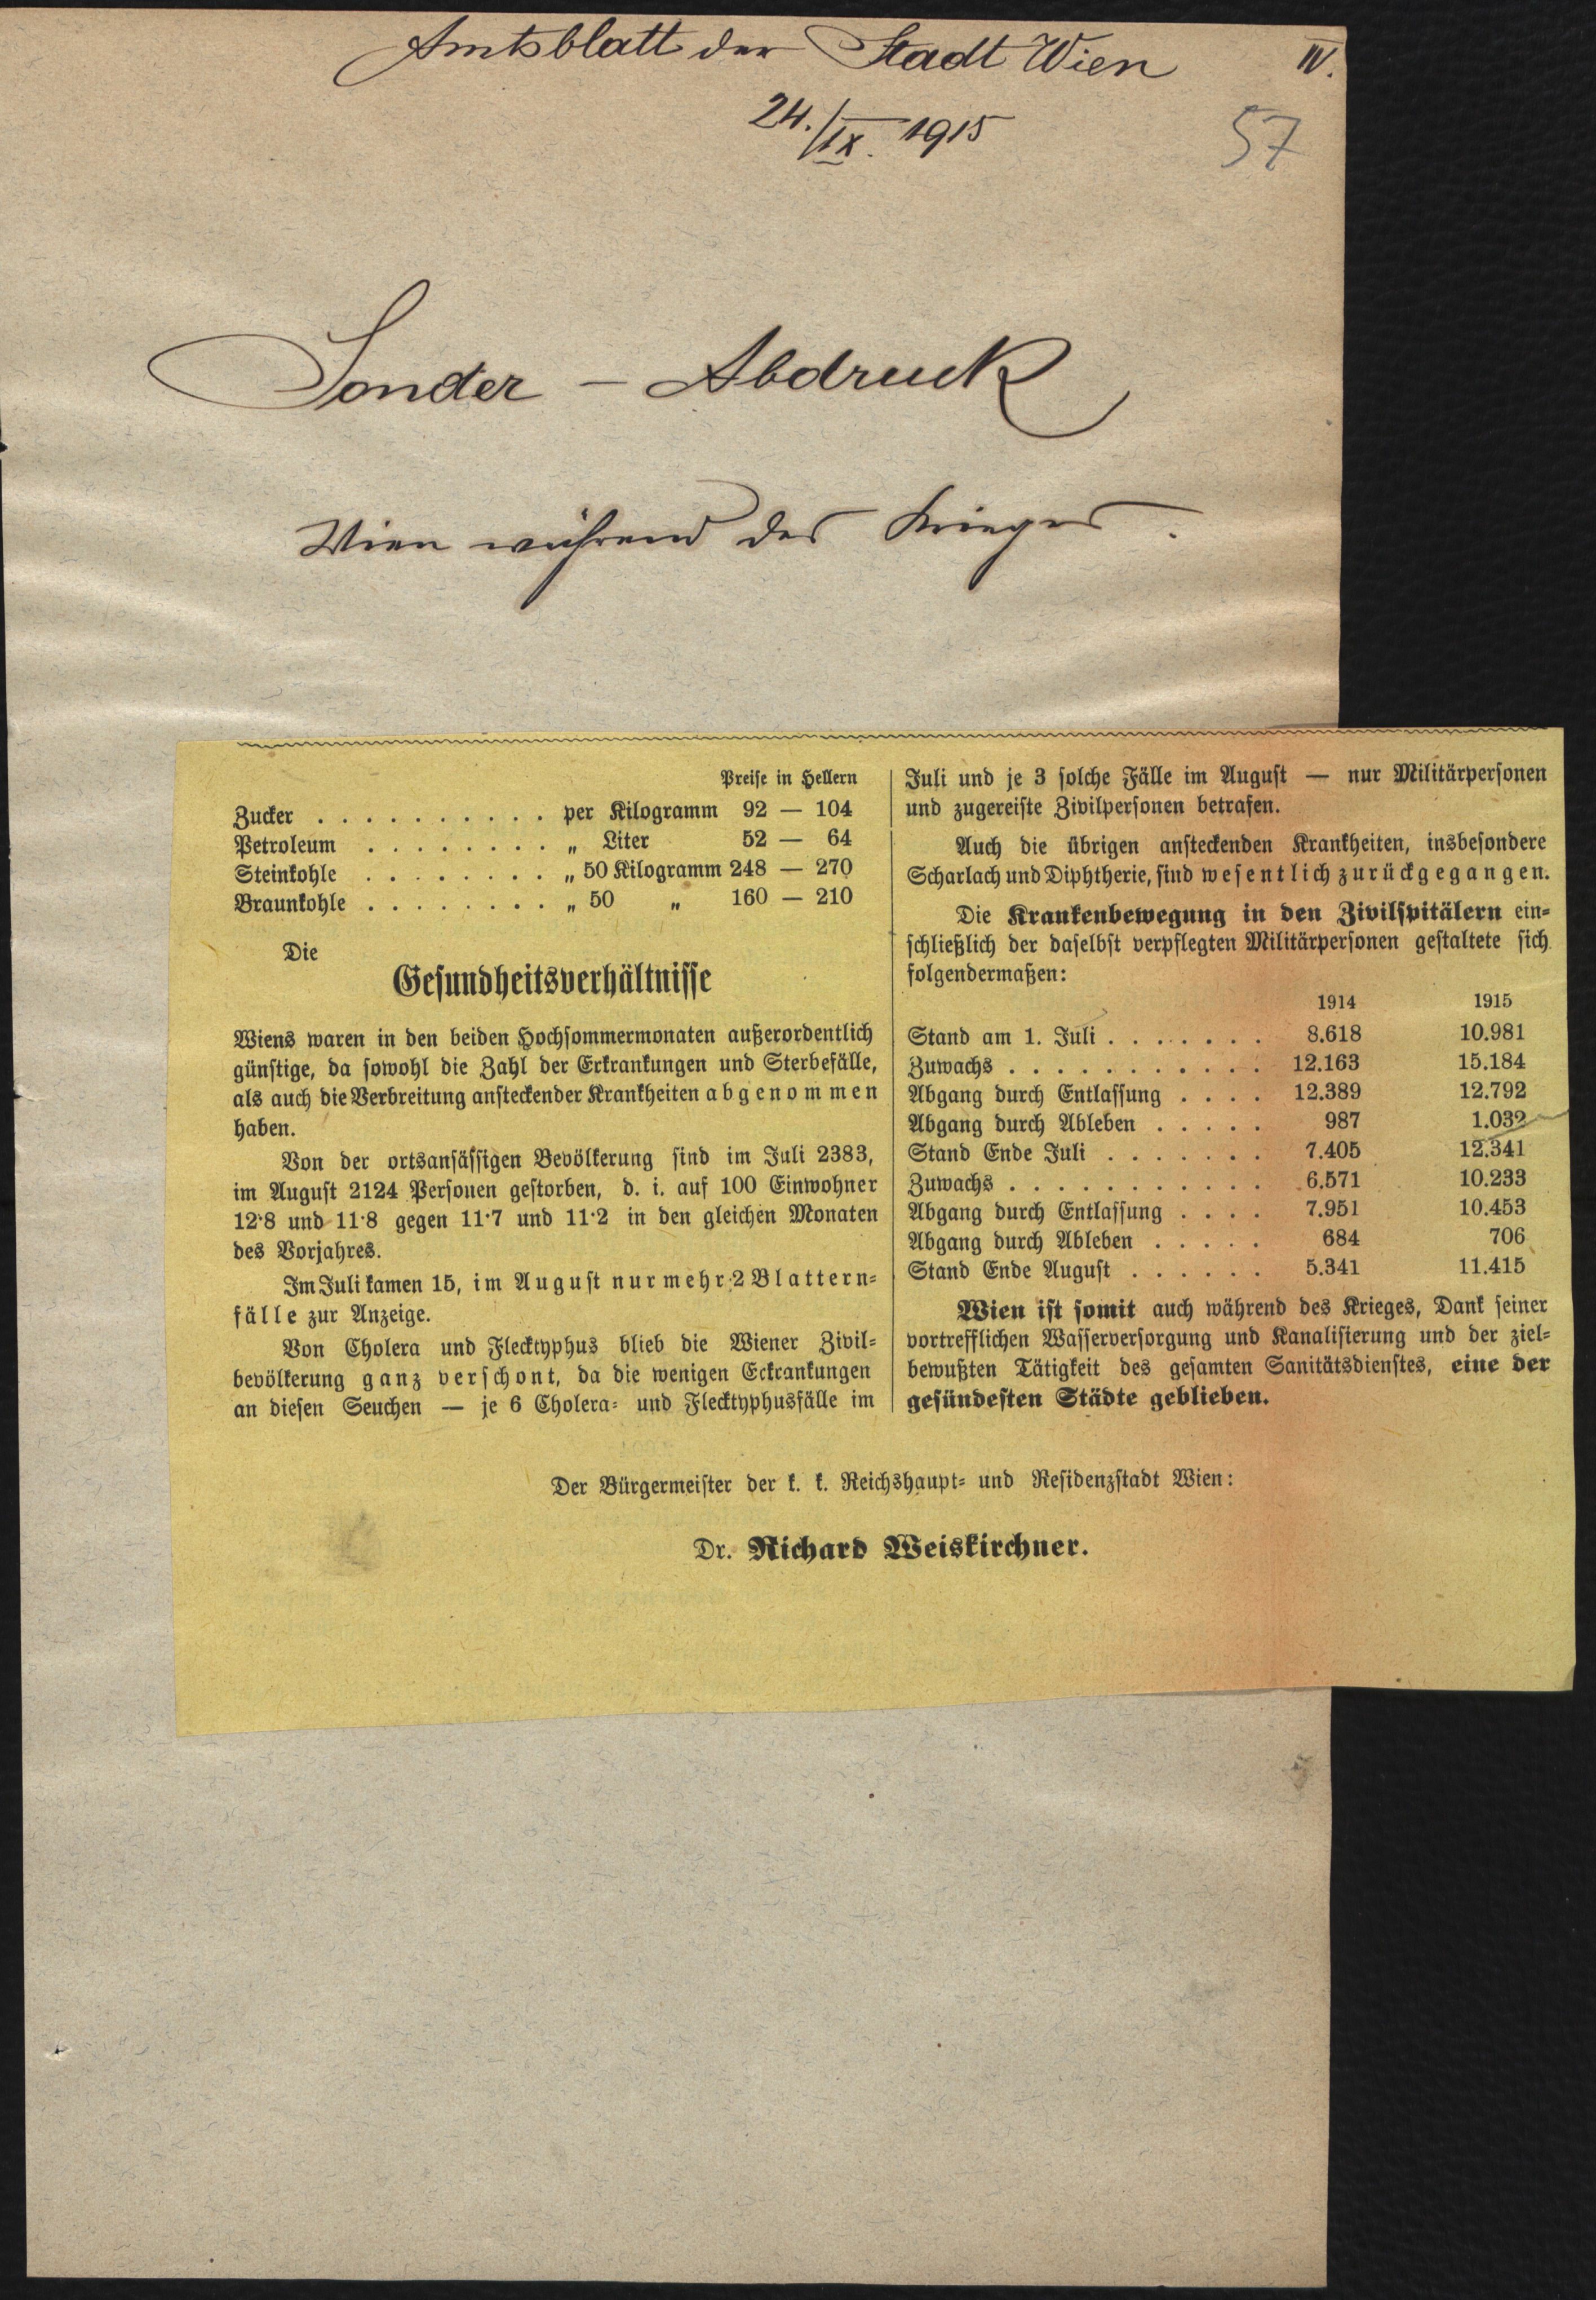 Amtsblatt der Stadt Wien
IV.
24./IX. 1915
57
Sonder – Abdruck
Wien während des Krieges.
Preise in Hellern
Zucker . . . . . . . . . . per Kilogramm 92 — 104
Petroleum . . . . . . . . „ Liter 52 — 64
Steinkohle . . . . . . . . „ 50 Kilogramm 248 — 270
Braunkohle . . . . . . . . „ 50 „ 160 — 210
Die
Gesundheitsverhältnisse
Wiens waren in den beiden Hochsommermonaten außerordentlich
günstige, da sowohl die Zahl der Erkrankungen und Sterbefälle,
als auch die Verbreitung ansteckender Krankheiten abgenommen
haben.
Von der ortsansässigen Bevölkerung sind im Juli 2383,
im August 2124 Personen gestorben, d. i. auf 100 Einwohner
12·8 und 11·8 gegen 11·7 und 11·2 in den gleichen Monaten
des Vorjahres.
Im Juli kamen 15, im August nur mehr 2 Blattern-
fälle zur Anzeige.
Von Cholera und Flecktyphus blieb die Wiener Zivil-
bevölkerung ganz verschont, da die wenigen Erkrankungen
an diesen Seuchen — je 6 Cholera- und Flecktyphusfälle im
Juli und je 3 solche Fälle im August — nur Militärpersonen
und zugereiste Zivilpersonen betrafen.
Auch die übrigen ansteckenden Krankheiten, insbesondere
Scharlach und Diphtherie, sind wesentlich zurückgegangen.
Die Krankenbewegung in den Zivilspitälern ein-
schließlich der daselbst verpflegten Militärpersonen gestaltete sich
folgendermaßen:
1914 1915
Stand am 1. Juli . . . . . . . 8.618 10.981
Zuwachs . . . . . . . . . . . 12.163 15.184
Abgang durch Entlassung . . . . 12.389 12.792
Abgang durch Ableben . . . . . 987 1.032
Stand Ende Juli . . . . . . . 7.405 12.341
Zuwachs . . . . . . . . . . . 6.571 10.233
Abgang durch Entlassung . . . . 7.951 10.453
Abgang durch Ableben . . . . . 684 706
Stand Ende August . . . . . . 5.341 11.415
Wien ist somit auch während des Krieges, Dank seiner
vortrefflichen Wasserversorgung und Kanalisierung und der ziel-
bewußten Tätigkeit des gesamten Sanitätsdienstes, eine der
gesündesten Städte geblieben.
Der Bürgermeister der k. k. Reichshaupt- und Residenzstadt Wien:
Dr. Richard Weiskirchner.